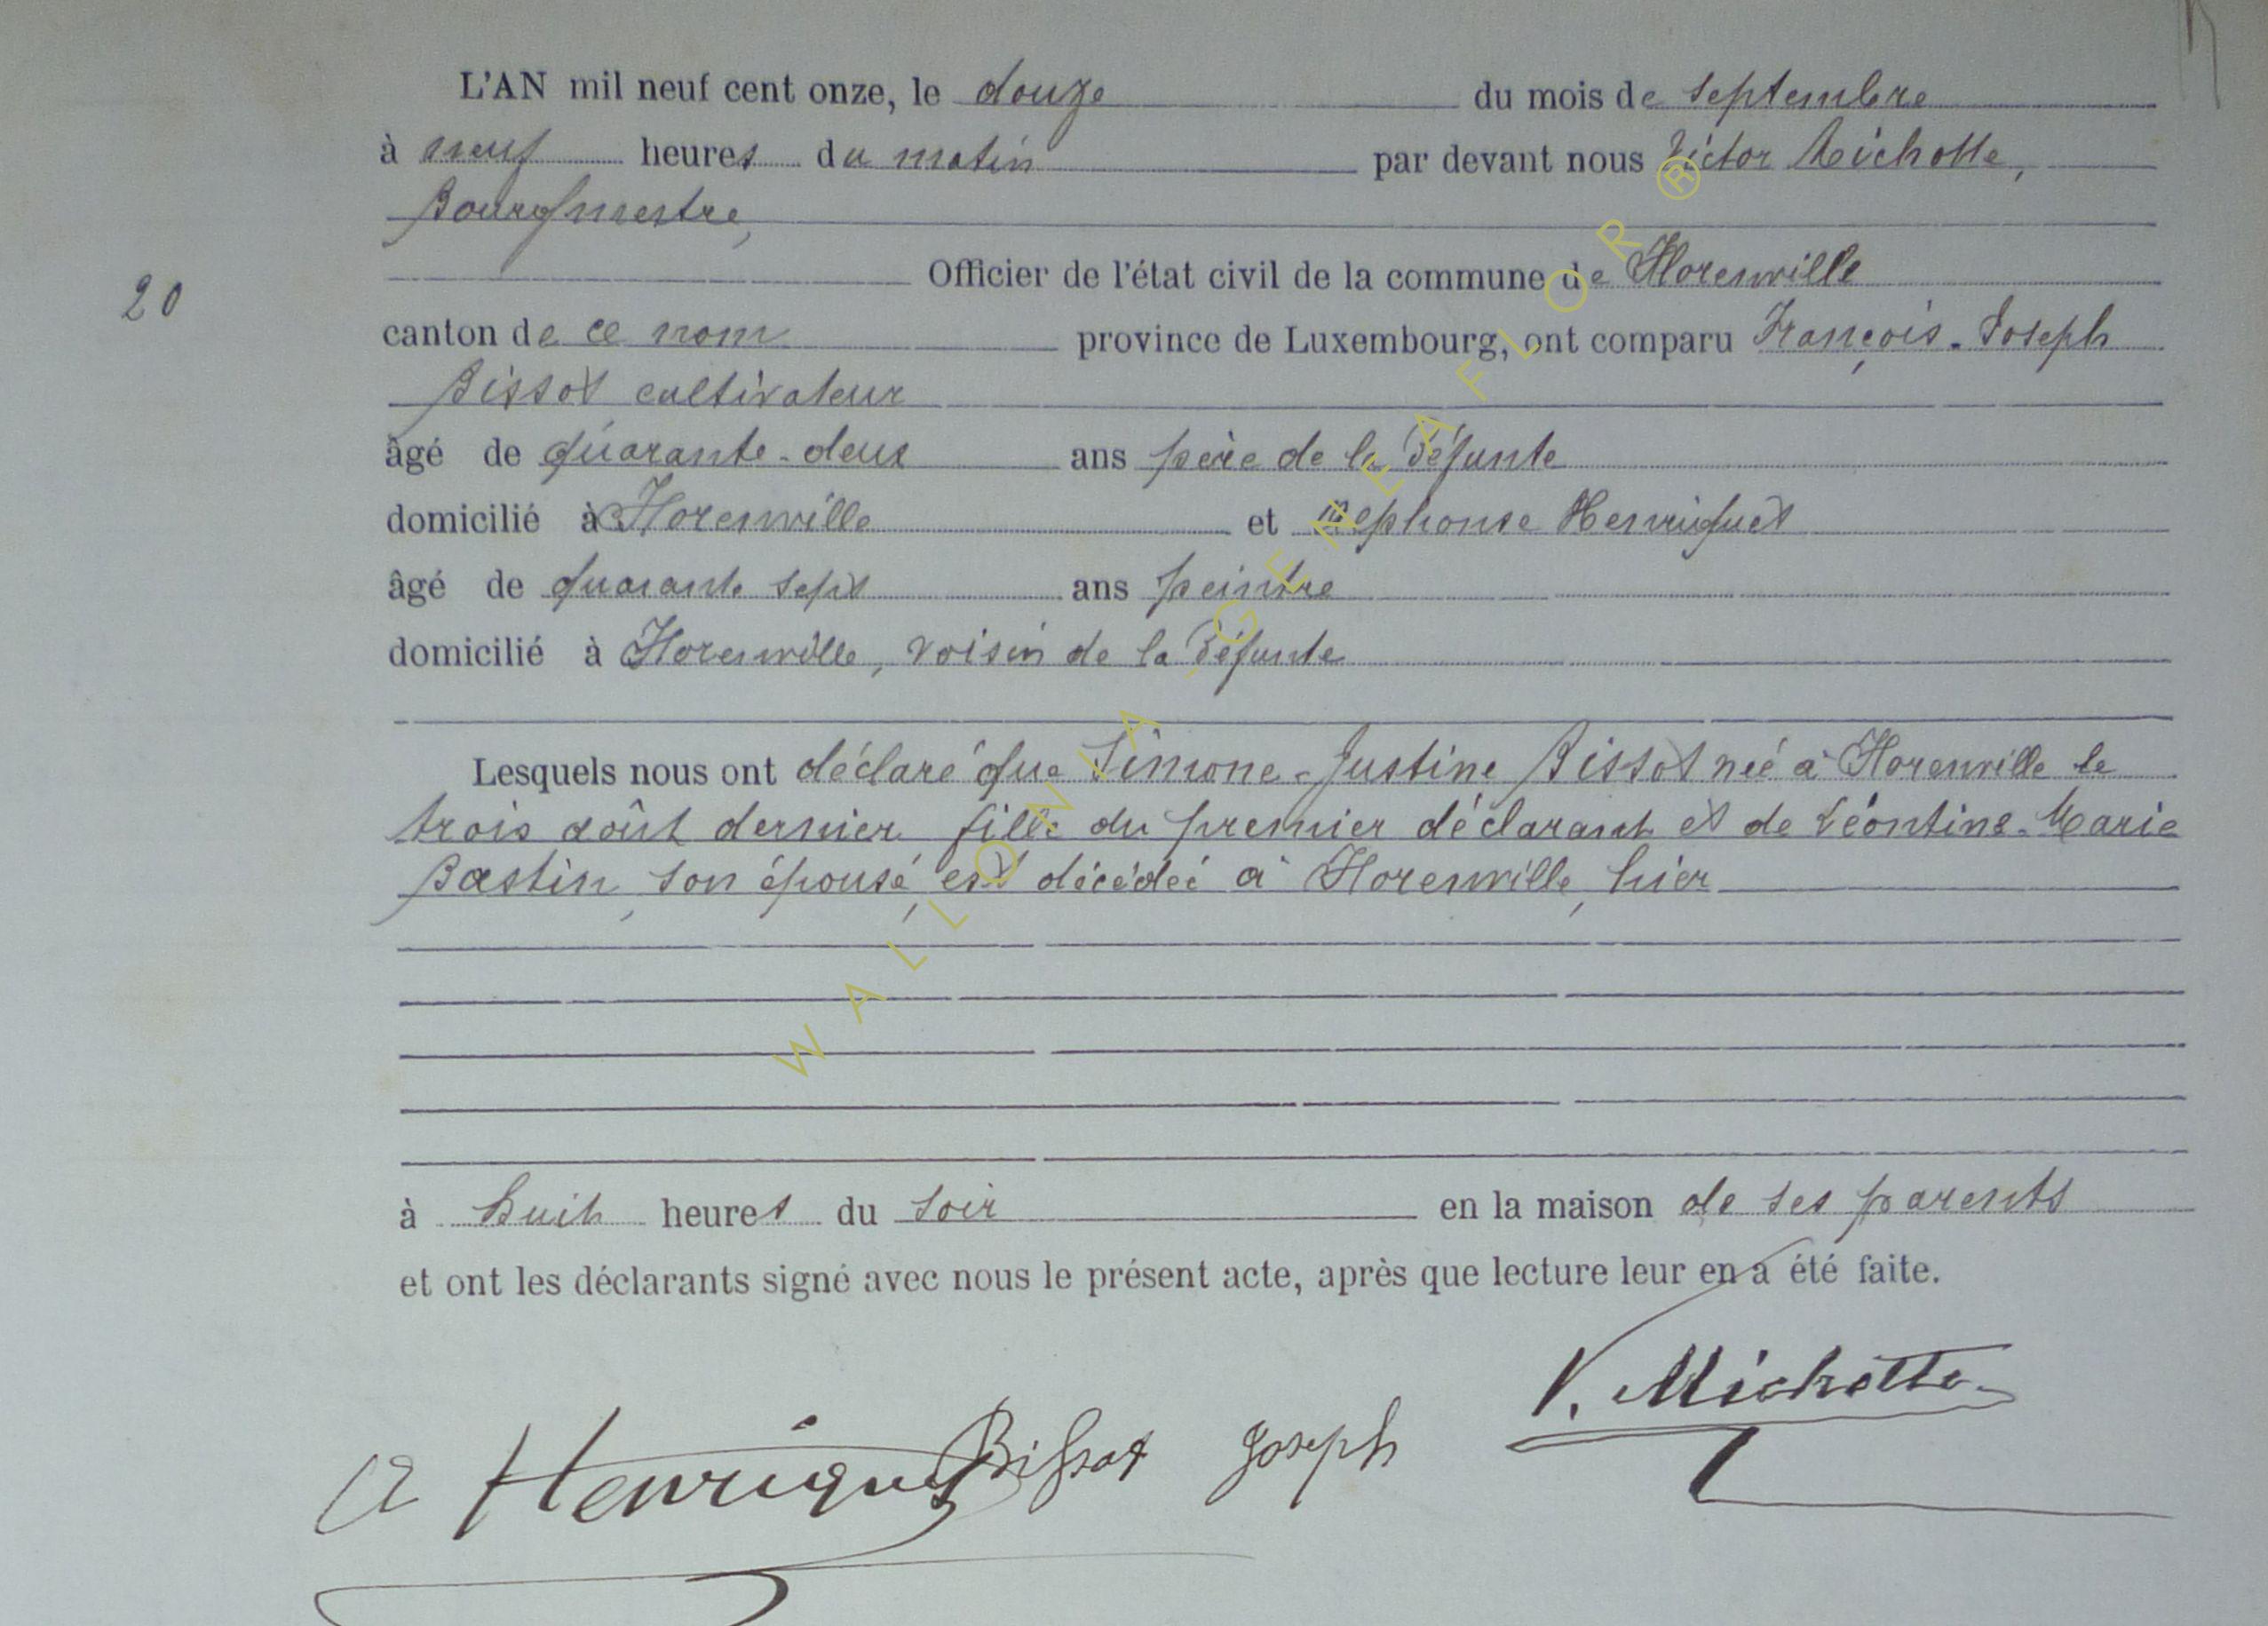 L'AN mil neuf cent onze, le douze du mois de septembre
à neuf heures du matin par devant nous Victor Michotte,
Bourgmestre,
Officier de l'état civil de la commune de Florenville
20
canton de ce nom province de Luxembourg, ont comparu François-Joseph
Bissot cultivateur
âgé de quarante-deux ans père de la défunte
domicilié à Florenville et Alphonse Henriquet
âgé de quarante sept ans peintre
domicilié à Florenville, voisin de la défunte
Lesquels nous ont déclaré que Simone-Justine Bissot née à Florenville le
trois août dernier fille du premier déclarant et de Léontine-Marie
Bastin, son épouse, est décédée à Florenville, hier
à huit heures du soir en la maison de ses parents
et ont les déclarants signé avec nous le présent acte, après que lecture leur en a été faite.
V. Michotte
A Henriquet Bissot Joseph
WALLONIA GENEAFLOR ®